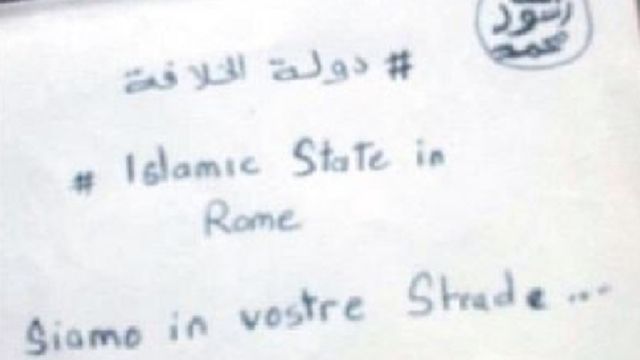 رسول
محمد
# دولة الخلافة
# Islamic State in
Rome
Siamo in vostre Strade ...